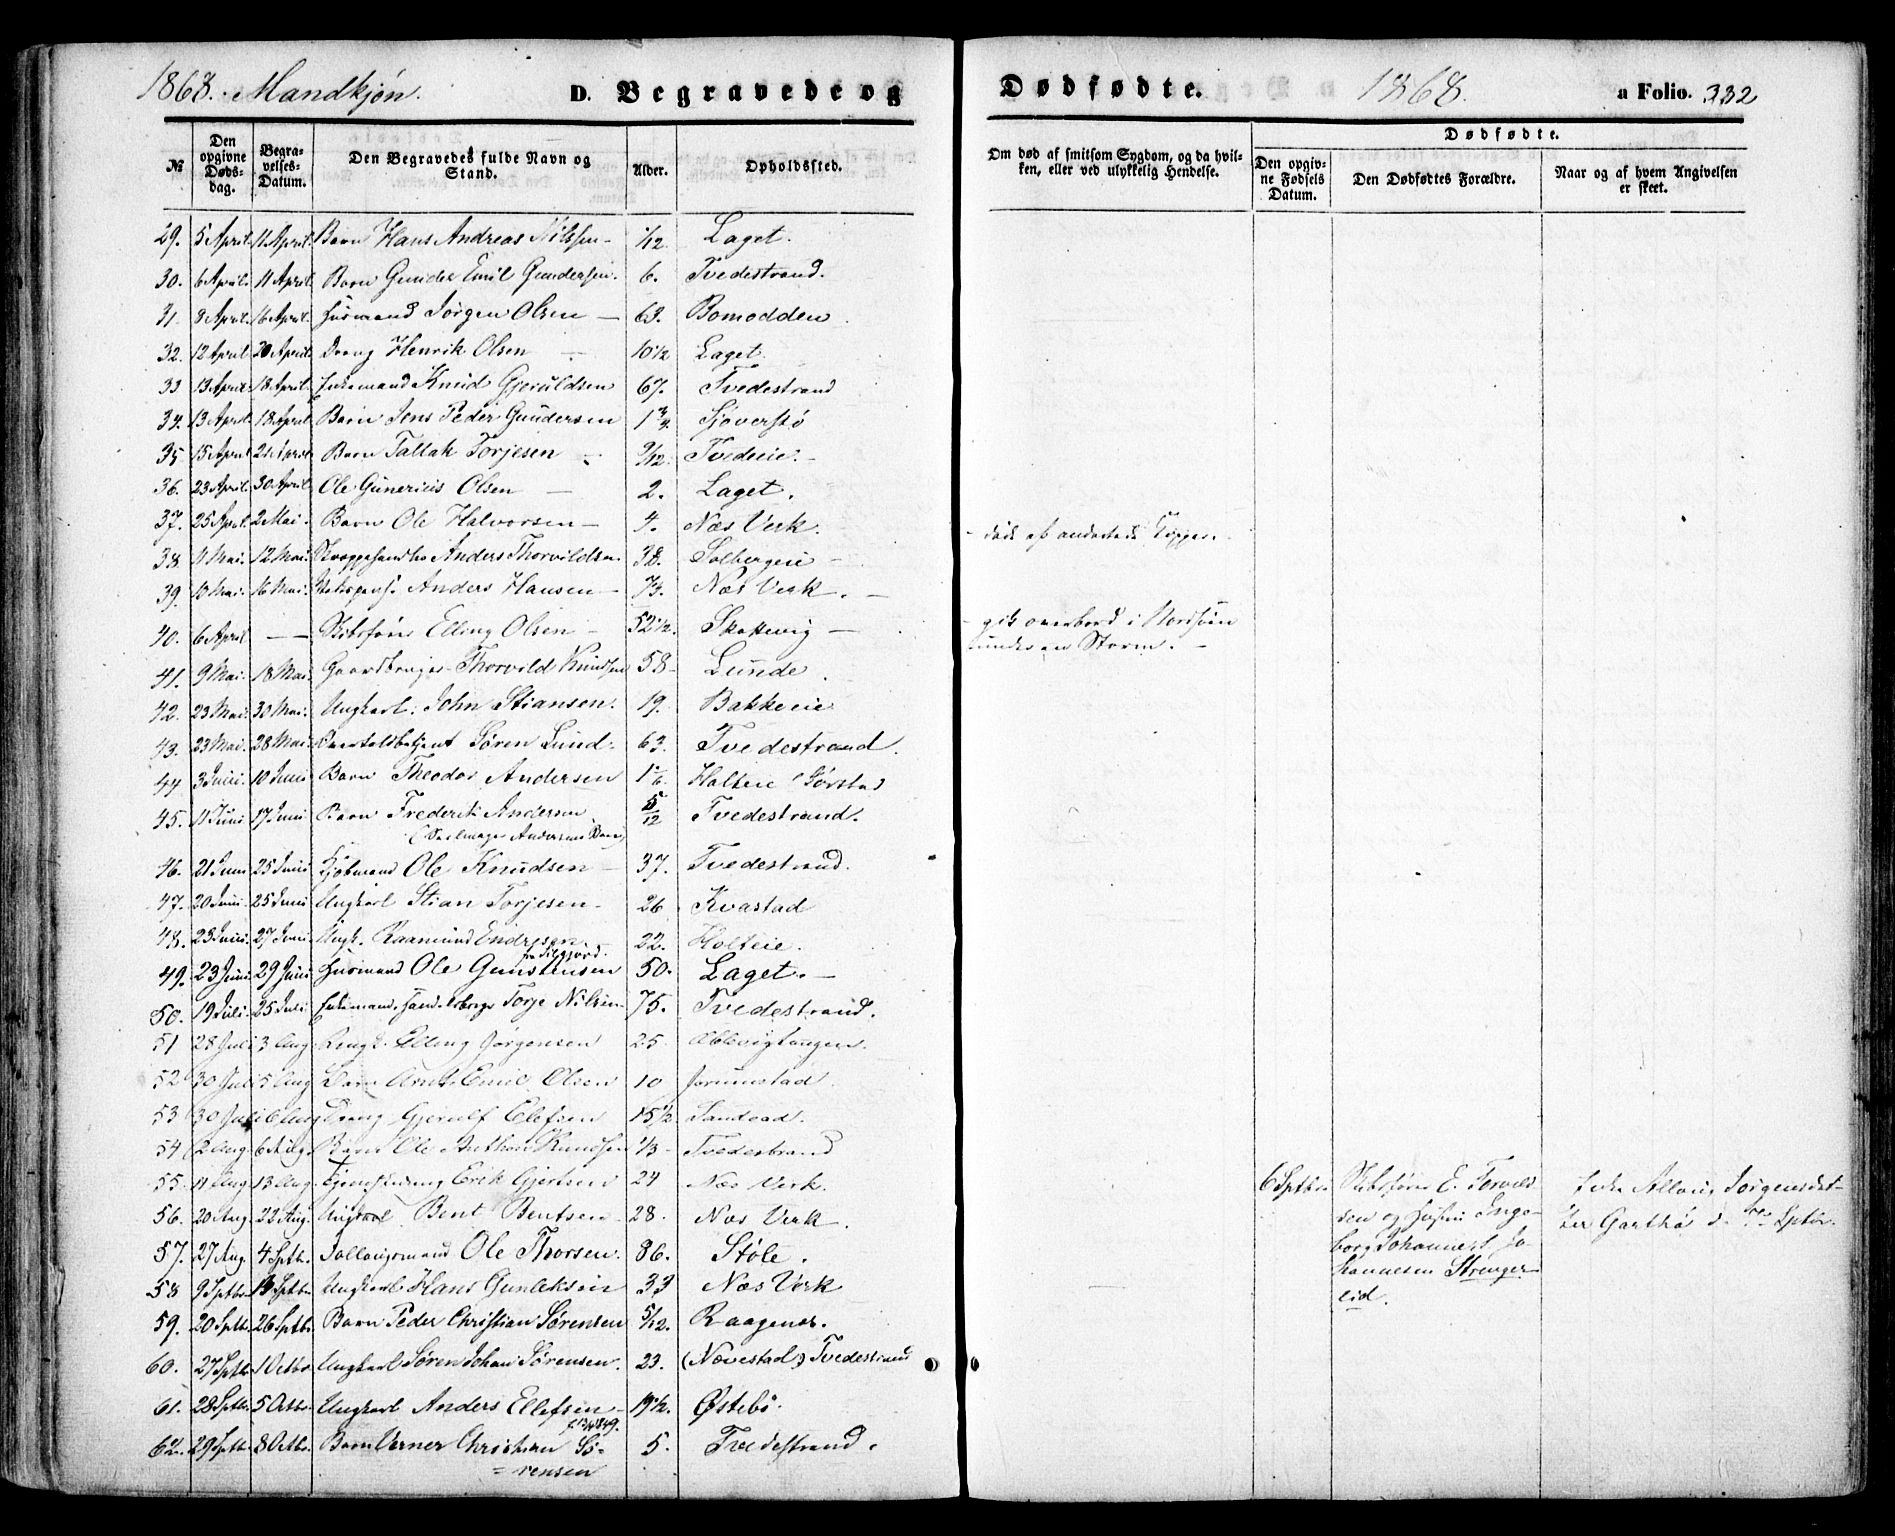 1868. Mandkjön.
D. Begravede og
№
Den opgivne Døds-dag.
Begra-velses-Datum.
Den Begravedes fulde Navn og Stand.
Alder.
Opholdssted.
29. 5 April. 11 April. Barn Hans Andreas Nilssen 1/12 Laget.
30. 6 April. 11 April. Barn Gunder Emil Gundersen. 6. Tvedestrand.
31. 8 April. 16 April. Husmand Jørgen Olsen — 63. Bomodden
32. 12 April 20 April. Dreng Henrik Olsen — 10 1/2 Laget.
33 13 April. 18 April. Enkemand Knud Gjeruldsen 67. Tvedestrand
34. 13 April. 18 April. Barn Jens Peder Gundersen 1 3/4 Sjøverstø
35 15 April 21 April. Barn Tallak Torjesen 9/12. Tvedeeie.
36. 23 April. 30 April. Ole Gunerius Olsen — 2. Laget.
37. 25 April. 2 Mai. Barn Ole Halvorsen — 4. Næs Verk.
38 Mai. 12 Mai. Anders Thorvildsen 38. Solbergeie
39. 10 Mai. 16 Mai. Anders Hansen — 73. Næs Verk.
40. 6 April — Skibsfører Elling Olsen — 52 1/2. Skottevig —
41. 9 Mai. 18 Mai. Gaardbruger Thorvild Knudsen 58 Lunde
42. 23 Mai. 30 Mai. Ungkarl. John Stiansen. 19. Bakkeeie
43. 23 Mai. 28 Mai. Søren Lund. 63. Tvedestrand.
44 3 Juni. 10 Juni Barn Theodor Andersen 1 1/6. Holteie Gørstad
45. 11 Juni 17 Juni Barn Frederik Andersen 5/12 Tvedestrand.
(Seilmager Andersens Barn)
46. 21 Juni 25 Juni Kjøbmand Ole Knudsen — 37. Tvedestrand.
47. 20 Juni. 25 Juni Ungkarl Stian Torjesen. 26 Kvastad
48. 23 Juni. 27 Juni. Ungk. Raamund Endresen. 22. Holteie.
49. 23 Juni. 29 Juni Husmand Ole Gunstensen 50. Laget. —
50. 19 Juli. 25 Juli. Enkemand, Torje Nilsen 75. Tvedestrand.
51 28 Juli 3 Aug Ungk. Elling Jörgensen 25 Ablevigtangen.
52 30 Juli 5 Aug Barn Arnt Emil Olsen 10 Jorunstad.
53 30 Juli 6 Aug Dreng Gjerulf Elefsen 15 1/2 Sandvad.
54 2 Aug. 6 Aug. Barn Ole Anthon Knudsen 1/3 Tvedestrand
55 11 Aug 13 Aug. Erik Gjertsen 24 Næs Verk.
56. 20 Aug. 22 Aug. Ungkarl Bent Bentsen 28. Næs Verk.
57. 27 Aug. 4 Sptb. Ole Thorsen. 86. Støle.
58 9 Sptb. Sptb. Ungkarl Hans Gunleksen 33 Næs Verk
59. 20 Sptb. 26 Sptb. Barn Peder Christian Sørensen 5/12. Raagenæs.
60. 27 Sptb. 1 Octbr. Ungkarl Søren Johan Sørensen. 23. (Nævestad) Tvedestrand
61. 28 Sptb. 5 Octbr. Ungkarl Anders Ellefsen 19 1/2. Østebö.
62. 29 Sptb. 8 Octbr. Barn Verner Christian Sö=
=rensen 5. Tvedestrand.
Dødfødte.
1868.
a Folio. 332
Om død af smitsom Sygdom, og da hvil-ken, eller ved ulykkelig Hendelse.
Dødfødte.
Den opgiv-ne Fødsels Datum.
Den Dødfødtes Forældre.
Naar og af hvem Angivelsen er skeet.
død af
gik overbord i Nordsöen
under en Storm. —
6 Sptbr. Skibsfører E. Torvild
sen og Hustru Inge-
borg Johanne Jo-
hannesen Strenger
eid.
Enke Allovis Jorgensdat-
ter Garthö d. 7de Sptbr.